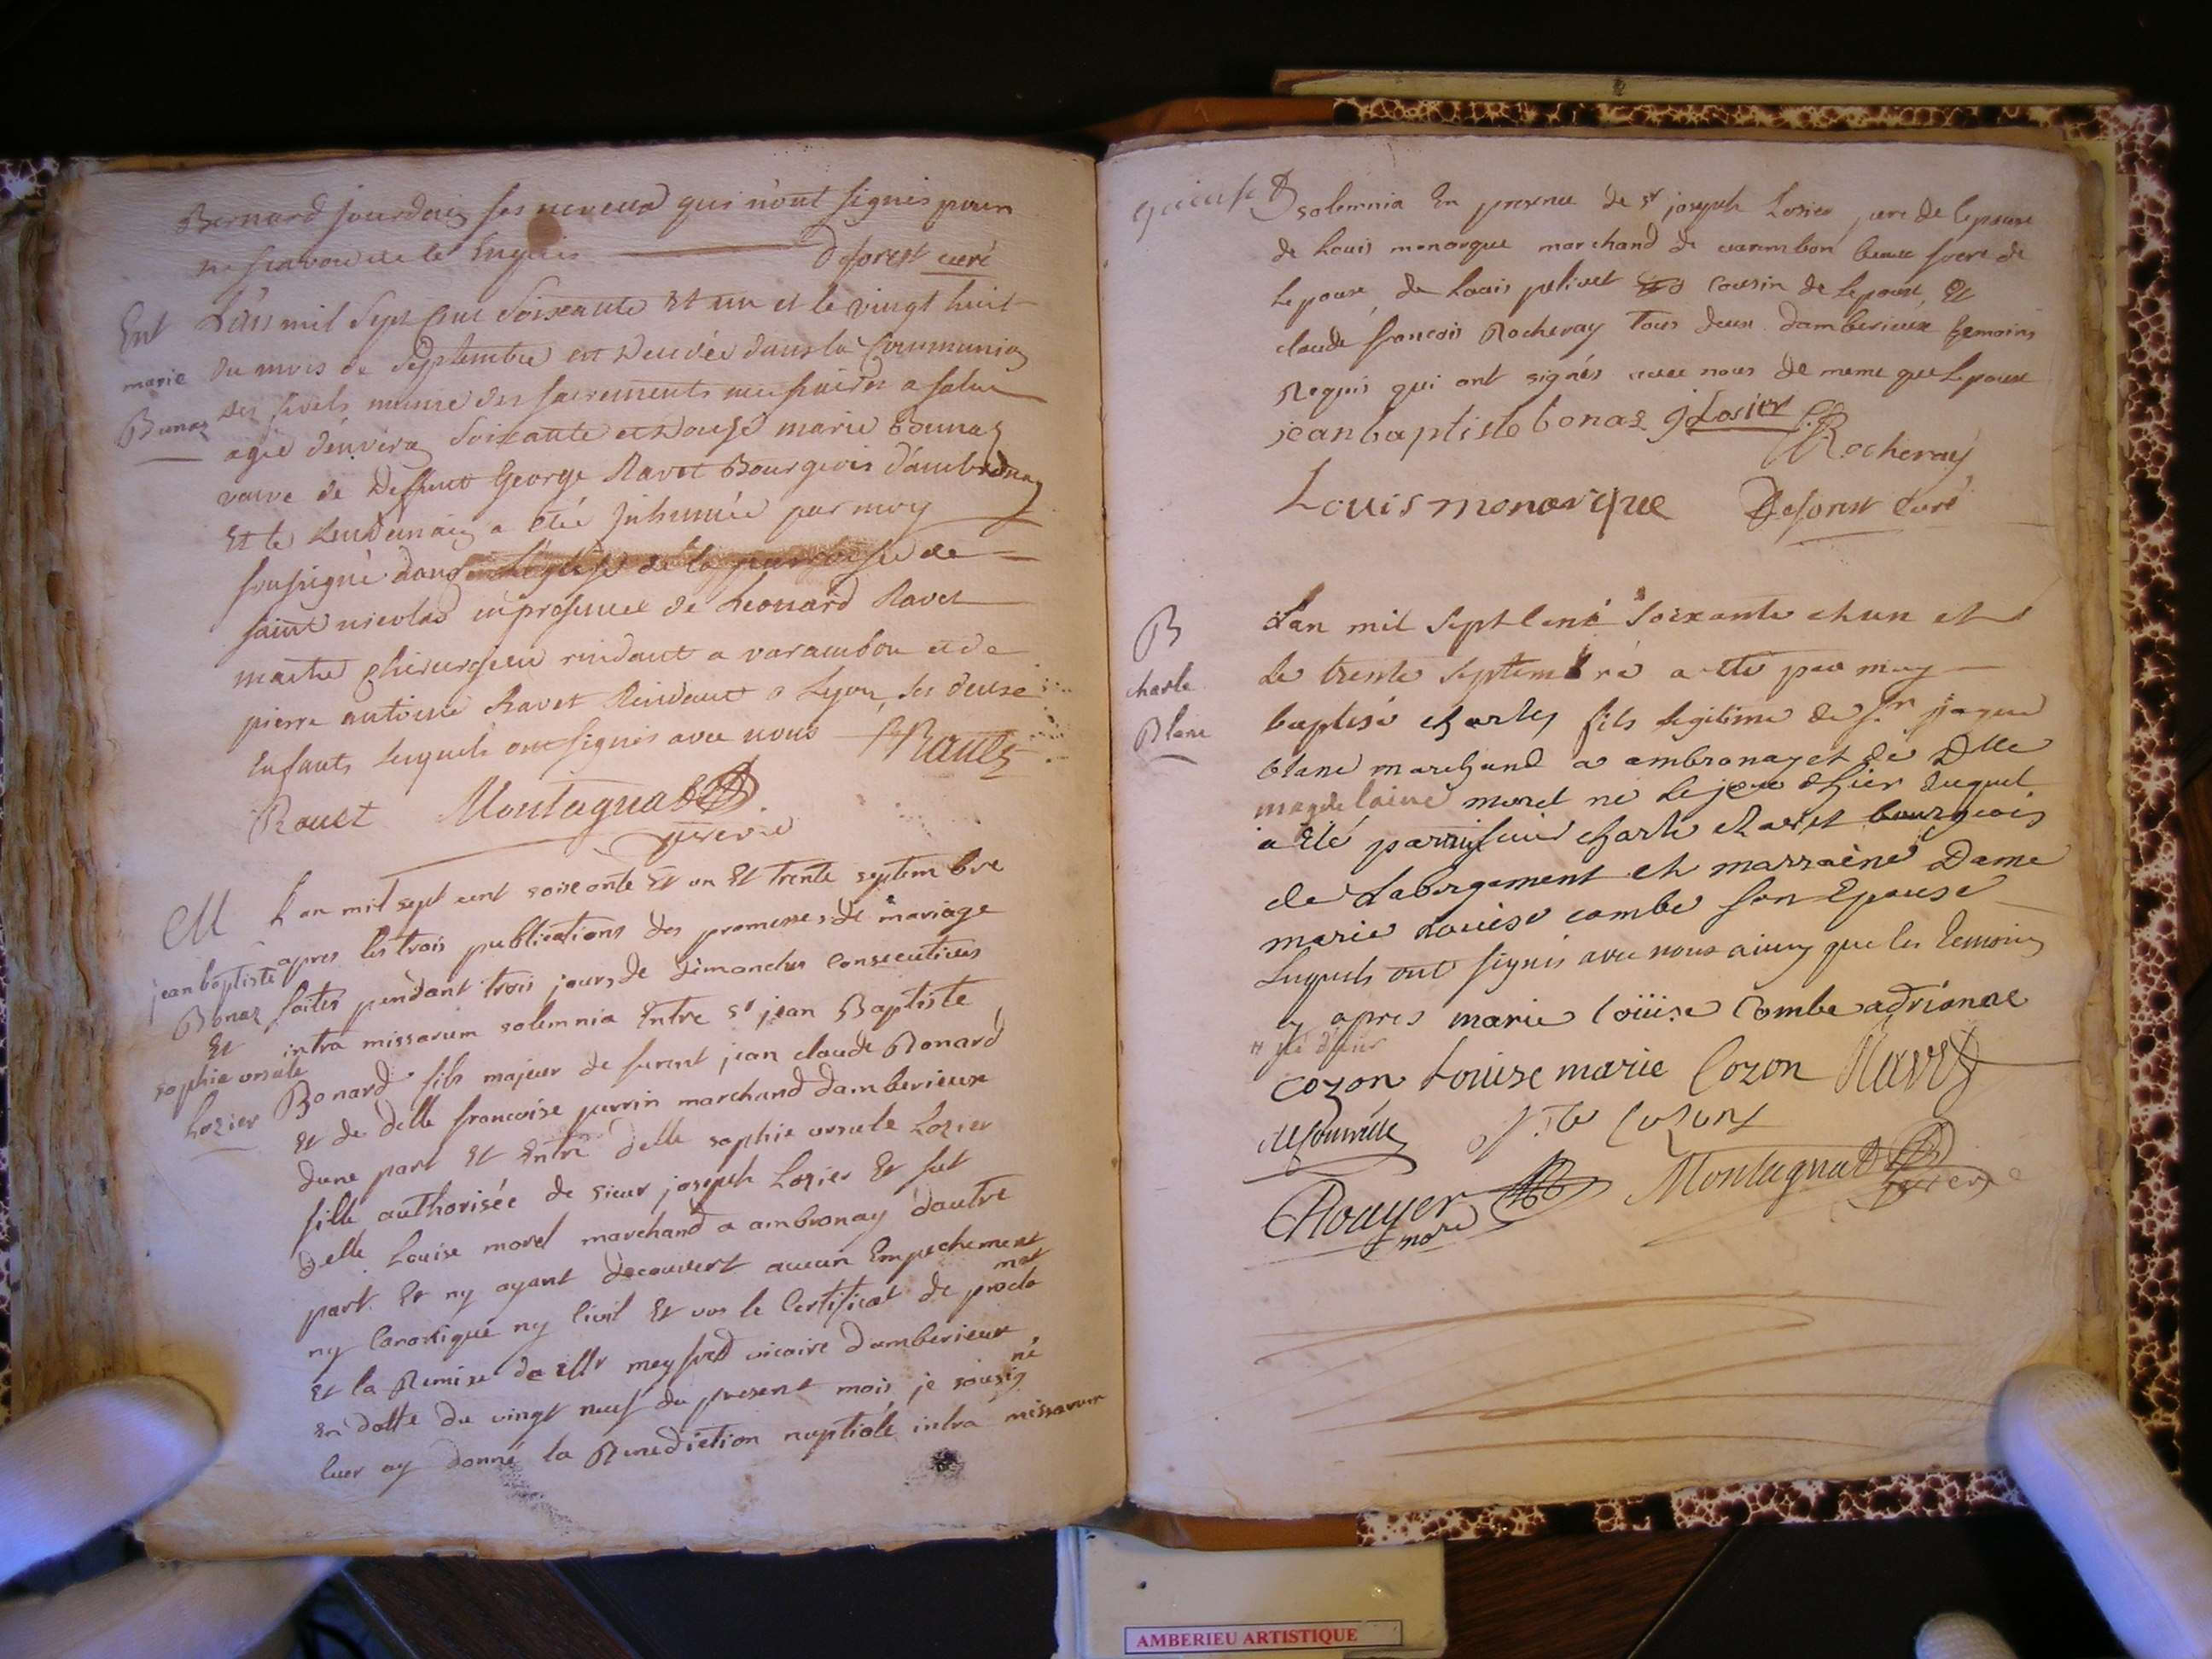 Bernard jourdain ses neveux qui n'ont signés pour
ne scavoir de ce Enquis Deforest curé
Ent
marie
Bonaz
L'an mil Sept Cent Soixante Et un et le vingt huit
du mois de Septembre est decedée dans la Communion
des fidels munie des sacrements necessaires a salut
agée d'environ Soixante et Douze marie Bonnaz
veuve de Deffunt George Ravet Bourgeois d'ambronay
Et le Lendemain a été Inhumée par moy
sousigné dans l'eglise de la parroisse de
saint nicolas en presence de Leonard Ravet
maitre chirurgien residant a varambon et de
pierre antoine Ravet Residant a Lyon, ses deux
Enfants lesquels ont signés avec nous
Rauet Montagnat
vicaire
M
jean baptiste
Bonaz
Et
sophie ursule
Lozier
L'an mil sept cent soixante Et un Et trente septembre
apres les trois publications des promesses de mariage
faites pendant trois jours de dimanches consecutives
intra missarum solemnia Entre sr jean Baptiste
Bonard fils majeur de furent jean claude Bonard
Et de delle francoise perrin marchand damberieux
dune part Et Entre delle sophie ursule Lozier
fille authorisée de sieur joseph Lozier Et fut
delle Louise morel marchand a ambronay dautre
part. Et ny ayant decouvert aucun Empechement
ny Canonique ny Civil Et vus le Certificat de procla
mat
Et la Remise de Mr meyfred vicaire damberieux
En datte du vingt neuf du present mois, je sousig
né
Curé ay donné la Benediction nuptiale intra missarum
solemnia En presence de sr joseph Lozier pere de lepouse
de Louis monarque marchand de varambon beau frere de
Lepouse, de Louis pelivet cousin de Lepoux, Et
claude francois Rocheray Tous deux damberieux temoins
Requis qui ont signés avec nous de meme que Lepoux
jean baptiste bonaz j Losier
Rocheray
Louis monarque Deforest Curé
B
charle
Blanc
L'an mil Sept Cent Soixante et un et
le trente septembre a eté par moy
baptisé charles fils legitime de sr jaque
blanc marchand a ambronay et de Dlle
magdelaine morel né le jour d'hier duquel
a eté parrain sieur charle charvet bourgeois
de Labergement et marraine Dame
marie Louise combe son Epouse
Lesquels ont signés avec nous ainsy que les temoins
cy apres marie Louise Combe adrianne
cozon Louise marie Cozon Ravet
Cozon
Rouyer
nore
Montagnat
vicaire
AMBERIEU ARTISTIQUE